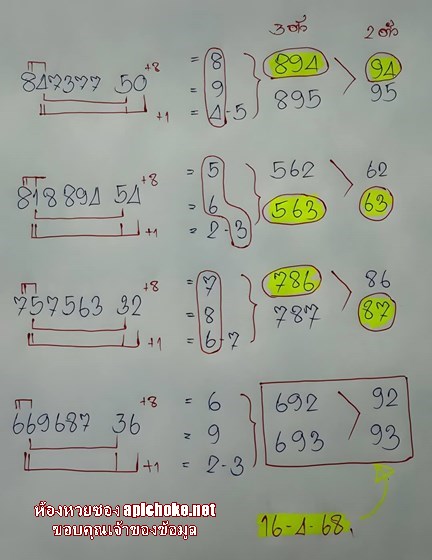 3 ตัว 2 ตัว
847377 50 +8 = 8 894 94
= 9 895 95
+1 = 4-5
818894 54 +8 = 5 562 62
= 6 563 63
+1 = 2-3
757563 32 +8 = 7 786 86
= 8 787 87
+1 = 6-7
669687 36 +8 = 6 692 92
= 9 693 93
+1 = 2-3
ห้องหวยซอง apichoke.net
ขอบคุณเจ้าของข้อมูล
16-4-68